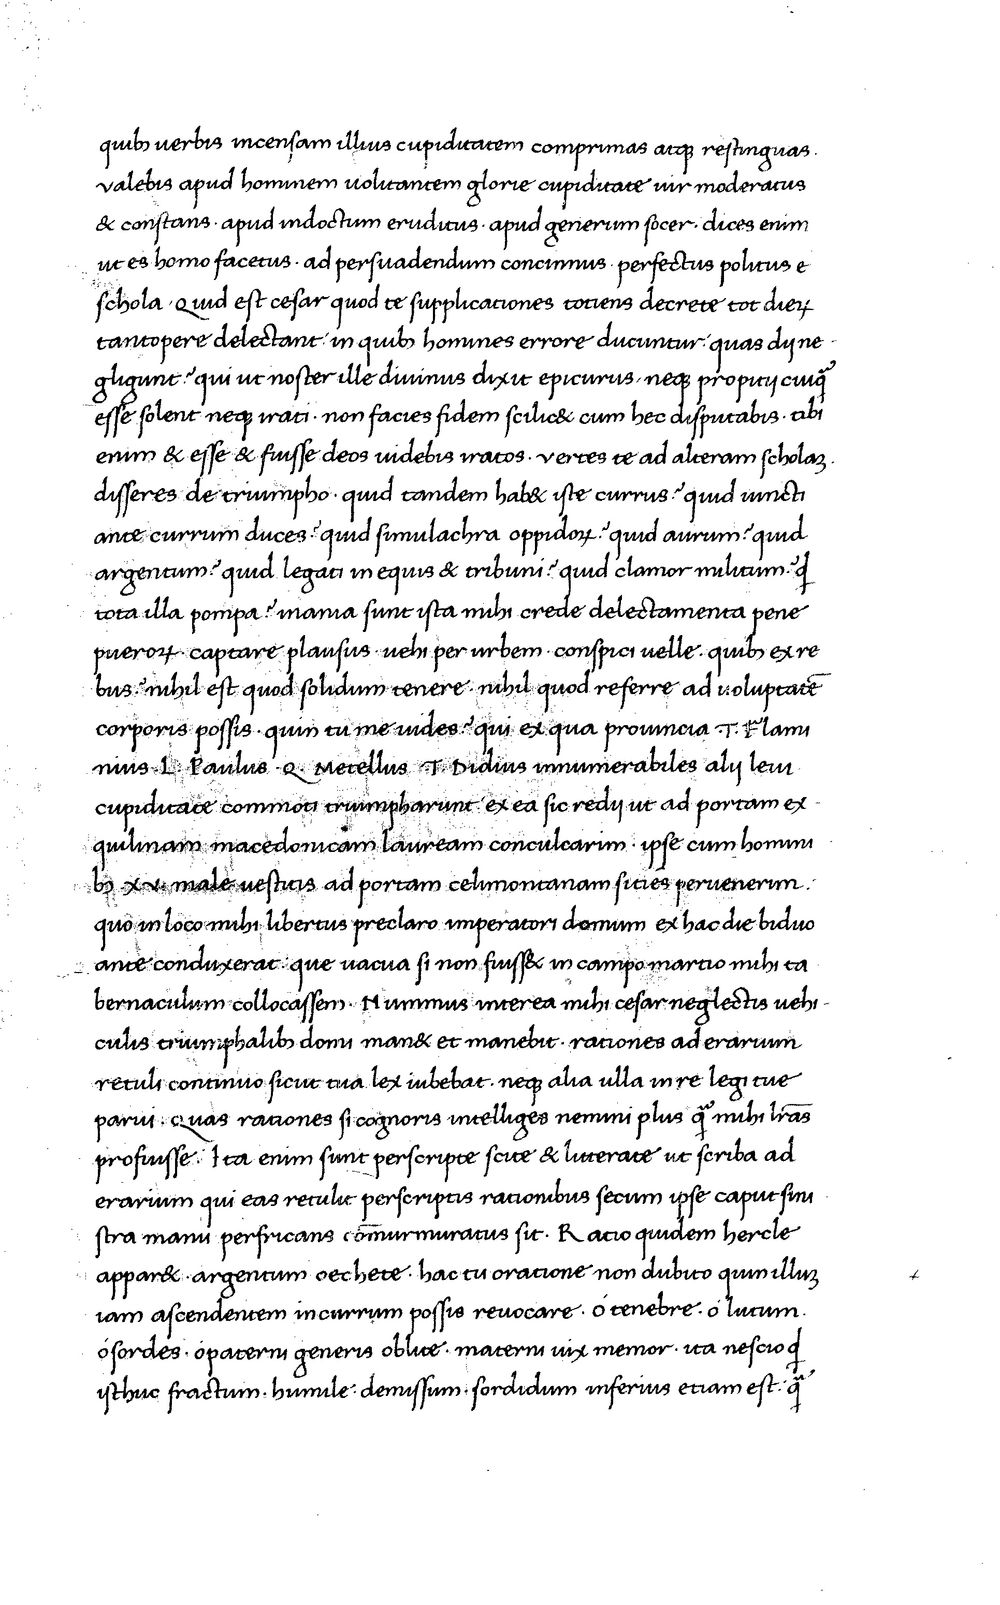 quibꝫ uerbis incensam illius cupiditatem comprimas atqꝫ restinguas.
valebis apud hominem uolitantem glorie cupiditate uir moderatus
& constans · apud indoctum eruditus · apud generum socer · dices enim
ut es homo facetus · ad persuadendum concinnus · perfectus politus e
schola · Quid est cesar quod te supplicationes totiens decrete tot dieꝝ
tantopere delectant · in quibꝫ homines errore ducuntur · quas dij ne-
gligunt? qui ut noster ille diuinus dixit epicurus · neqꝫ propitij cuiq̃
esse solent neqꝫ irati · non facies fidem scilic& cum hec disputabis · tibi
enim & esse & fuisse deos uidebis iratos · vertes te ad alteram scholaꝫ.
disseres de triumpho · quid tandem hab& iste currus? quid iuncti
ante currum duces? quid simulachra oppidoꝝ? quid aurum? quid
argentum? quid legati in equis & tribuni? quid clamor militum? qd̃
tota illa pompa? inania sunt ista mihi crede delectamenta pene
pueroꝝ · captare plausus · uehi per urbem · conspici uelle · quibꝫ ex re
bus? nihil est quod solidum tenere · nihil quod referre ad uoluptatē
corporis possis · quin tu me uides? qui ex qua prouincia .T. Flami
nius · L. Paulus · Q. Metellus T. Didius innumerabiles alij leui
cupiditate commoti triumpharunt ex ea sic redij ut ad portam ex-
quilinam macedonicam lauream conculcarim · ipse cum homini
bꝫ xv. male uestitis ad portam celimontanam sities peruenerim.
quo in loco mihi libertus preclaro imperatori domum ex hac die biduo
ante conduxerat · que uacua si non fuiss& in campo martio mihi ta
bernaculum collocassem · Nummus interea mihi cesar neglectis uehi-
culis triumphalibꝫ domi man& et manebit · rationes ad erarium
retuli continuo sicut tua lex iubebat · neqꝫ alia ulla in re legi tue
parui · Quas rationes si cognoris intelliges nemini plus q̃ mihi lr̃as
profuisse. Ita enim sunt perscripte scite & litterate ut scriba ad
erarium qui eas retulit perscriptis rationibus secum ipse caput sini
stra manu perfricans com̃urmuratus sit · Ratio quidem hercle
appar& · argentum oechete · hac tu oratione non dubito quin illuꝫ
iam ascendentem in currum possis reuocare · o tenebre · o lutum.
o sordes · o paterni generis oblite · materni uix memor · ita nescio qd̃
isthuc fractum · humile · demissum · sordidum inferius etiam est · q̃